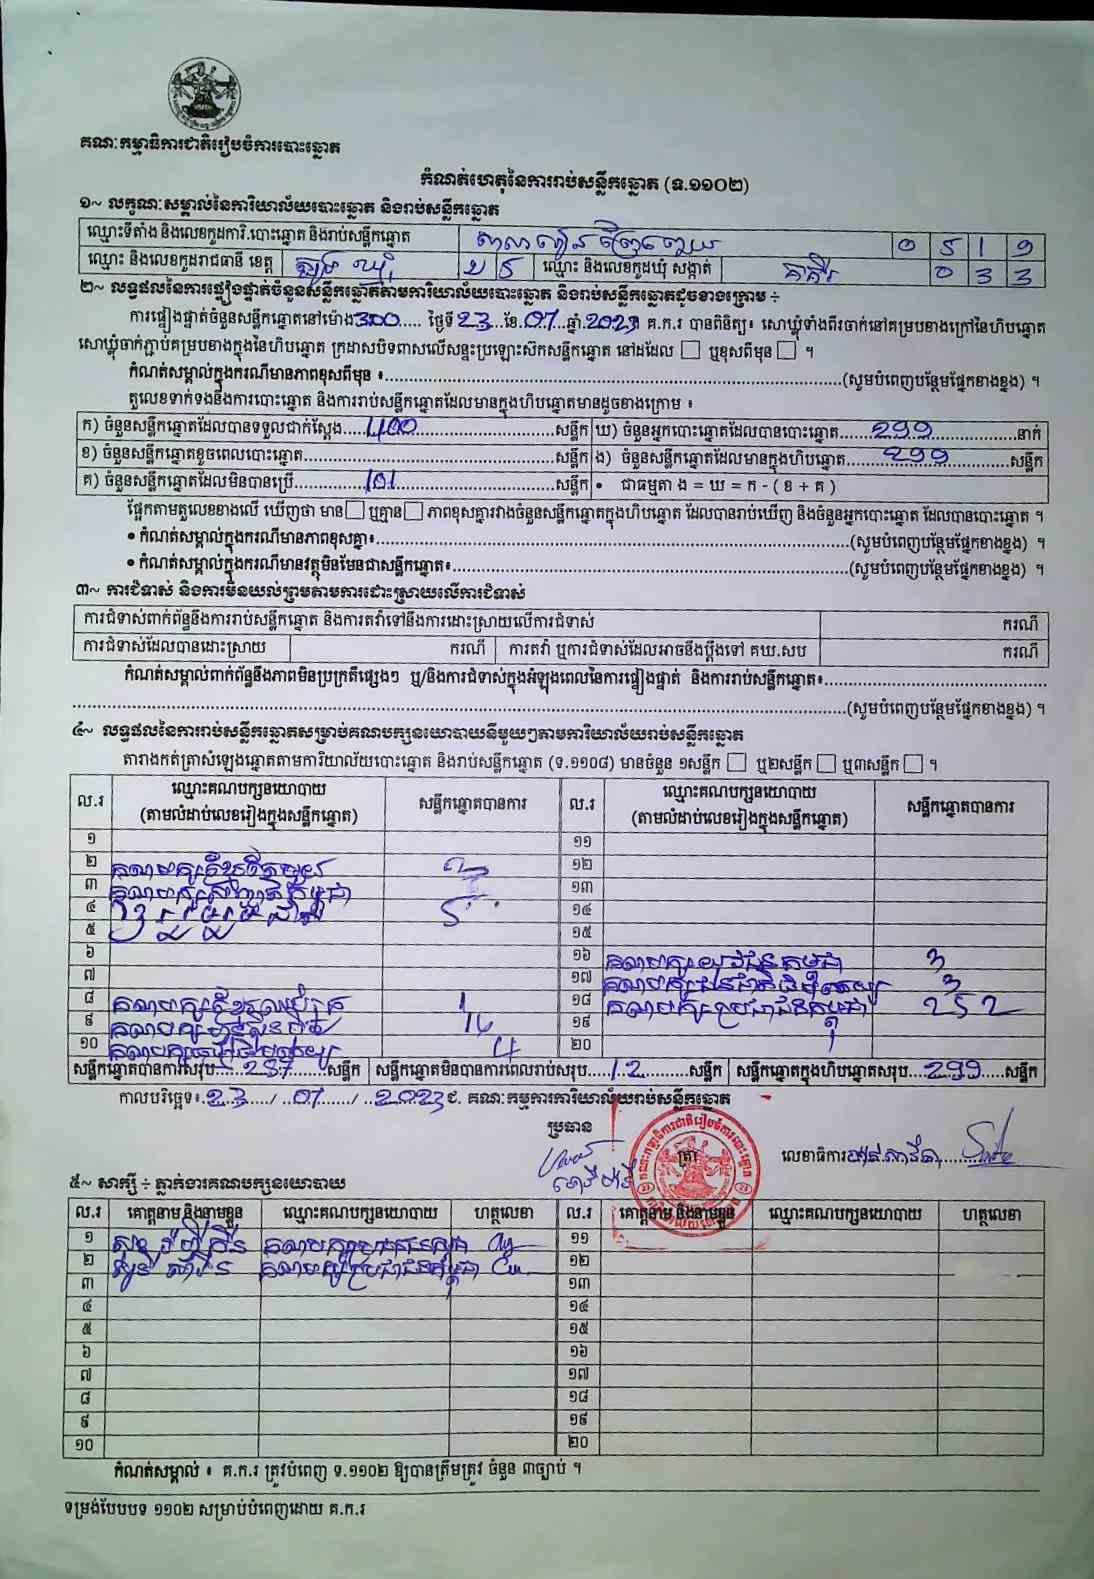 គណៈកម្មាធិការជាតិរៀបចំការបោះឆ្នោត
កំណត់ហេតុនៃការរាប់សន្លឹកឆ្នោត (ទ.១១០២)
១~ លក្ខណៈសម្គាល់នៃការិយាល័យបោះឆ្នោត និងរាប់សន្លឹកឆ្នោត
ឈ្មោះទីតាំង និងលេខកូដការិ.បោះឆ្នោត និងរាប់សន្លឹកឆ្នោត 0 5 1 9
ឈ្មោះ និងលេខកូដរាជធានី ខេត្ត ឈ្មោះ និងលេខកូដឃុំ សង្កាត់ 0 3 3
២~ លទ្ធផលនៃការផ្ទៀងផ្ទាត់ចំនួនសន្លឹកឆ្នោតតាមការិយាល័យបោះឆ្នោត និងរាប់សន្លឹកឆ្នោតដូចខាងក្រោម ÷
ការផ្ទៀងផ្ទាត់ចំនួនសន្លឹកឆ្នោតនៅម៉ោង 3:00 ថ្ងៃទី 23 ខែ 07 ឆ្នាំ 2023 គ.ក.រ បានពិនិត្យ៖ សោឃ្លុំទាំងពីរចាក់នៅគម្របខាងក្រៅនៃហិបឆ្នោត
សោឃ្លុំចាក់ភ្ជាប់គម្របខាងក្នុងនៃហិបឆ្នោត ក្រដាសបិទពាសលើសន្ទះប្រឡោះស៊កសន្លឹកឆ្នោត នៅដដែល □ ឬខុសពីមុន □ ។
កំណត់សម្គាល់ក្នុងករណីមានភាពខុសពីមុន ៖ (សូមបំពេញបន្ថែមផ្នែកខាងខ្នង) ។
តួលេខទាក់ទងនឹងការបោះឆ្នោត និងការរាប់សន្លឹកឆ្នោតដែលមានក្នុងហិបឆ្នោតមានដូចខាងក្រោម ៖
ក) ចំនួនសន្លឹកឆ្នោតដែលបានទទួលជាក់ស្តែង 400 សន្លឹក ឃ) ចំនួនអ្នកបោះឆ្នោតដែលបានបោះឆ្នោត 299 នាក់
ខ) ចំនួនសន្លឹកឆ្នោតខូចពេលបោះឆ្នោត សន្លឹក ង) ចំនួនសន្លឹកឆ្នោតដែលមានក្នុងហិបឆ្នោត 299 សន្លឹក
គ) ចំនួនសន្លឹកឆ្នោតដែលមិនបានប្រើ 101 សន្លឹក • ជាធម្មតា ង = ឃ = ក - ( ខ + គ )
ផ្អែកតាមតួលេខខាងលើ ឃើញថា មាន □ ឬគ្មាន □ ភាពខុសគ្នារវាងចំនួនសន្លឹកឆ្នោតក្នុងហិបឆ្នោត ដែលបានរាប់ឃើញ និងចំនួនអ្នកបោះឆ្នោត ដែលបានបោះឆ្នោត ។
• កំណត់សម្គាល់ក្នុងករណីមានភាពខុសគ្នា៖ (សូមបំពេញបន្ថែមផ្នែកខាងខ្នង) ។
• កំណត់សម្គាល់ក្នុងករណីមានវត្ថុមិនមែនជាសន្លឹកឆ្នោត៖ (សូមបំពេញបន្ថែមផ្នែកខាងខ្នង) ។
៣~ ការជំទាស់ និងការមិនយល់ព្រមតាមការដោះស្រាយលើការជំទាស់
ការជំទាស់ពាក់ព័ន្ធនឹងការរាប់សន្លឹកឆ្នោត និងការតវ៉ាទៅនឹងការដោះស្រាយលើការជំទាស់ ករណី
ការជំទាស់ដែលបានដោះស្រាយ ករណី ការតវ៉ា ឬការជំទាស់ដែលអាចនឹងប្តឹងទៅ គឃ.សប ករណី
កំណត់សម្គាល់ពាក់ព័ន្ធនឹងភាពមិនប្រក្រតីផ្សេងៗ ឬ/និងការជំទាស់ក្នុងអំឡុងពេលនៃការផ្ទៀងផ្ទាត់ និងការរាប់សន្លឹកឆ្នោត៖
(សូមបំពេញបន្ថែមផ្នែកខាងខ្នង) ។
៤~ លទ្ធផលនៃការរាប់សន្លឹកឆ្នោតសម្រាប់គណបក្សនយោបាយនីមួយៗតាមការិយាល័យរាប់សន្លឹកឆ្នោត
តារាងកត់ត្រាសំឡេងឆ្នោតតាមការិយាល័យបោះឆ្នោត និងរាប់សន្លឹកឆ្នោត (ទ.១១០៨) មានចំនួន ១សន្លឹក □ ឬ២សន្លឹក □ ឬ៣សន្លឹក □ ។
ល.រ ឈ្មោះគណបក្សនយោបាយ (តាមលំដាប់លេខរៀងក្នុងសន្លឹកឆ្នោត) សន្លឹកឆ្នោតបានការ ល.រ ឈ្មោះគណបក្សនយោបាយ (តាមលំដាប់លេខរៀងក្នុងសន្លឹកឆ្នោត) សន្លឹកឆ្នោតបានការ
១ ១១
២ ១២
៣ ១៣
៤ ១៤
៥ ១៥
៦ ១៦ គណបក្សយុវជនកម្ពុជា 3
៧ ១៧ 3
៨ 1 ១៨ គណបក្សប្រជាជនកម្ពុជា 252
៩ 14 ១៩
១០ 4 ២០
សន្លឹកឆ្នោតបានការសរុប 287 សន្លឹក សន្លឹកឆ្នោតមិនបានការពេលរាប់សរុប 12 សន្លឹក សន្លឹកឆ្នោតក្នុងហិបឆ្នោតសរុប 299 សន្លឹក
កាលបរិច្ឆេទ៖ 23 / 07 / 2023 ជ. គណៈកម្មការការិយាល័យរាប់សន្លឹកឆ្នោត
ប្រធាន
ត្រា
លេខាធិការ
៥~ សាក្សី ÷ ភ្នាក់ងារគណបក្សនយោបាយ
ល.រ គោត្តនាម និងនាមខ្លួន ឈ្មោះគណបក្សនយោបាយ ហត្ថលេខា ល.រ គោត្តនាម និងនាមខ្លួន ឈ្មោះគណបក្សនយោបាយ ហត្ថលេខា
១ ១១
២ គណបក្សប្រជាជនកម្ពុជា ១២
៣ ១៣
៤ ១៤
៥ ១៥
៦ ១៦
៧ ១៧
៨ ១៨
៩ ១៩
១០ ២០
កំណត់សម្គាល់ ៖ គ.ក.រ ត្រូវបំពេញ ទ.១១០២ ឱ្យបានត្រឹមត្រូវ ចំនួន ៣ច្បាប់ ។
ទម្រង់បែបបទ ១១០២ សម្រាប់បំពេញដោយ គ.ក.រ